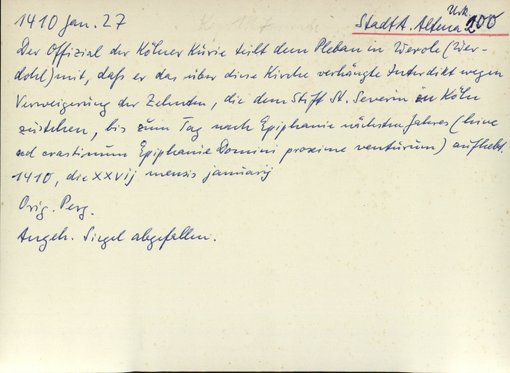 1410 Jan. 27
Urk.
StadtA. Altena 200
Der Offizial der Kölner Kurie teilt dem Pleban in Werole (Wer-
dohl) mit, daß er das über diese Kirche verhängte Interdikt wegen
Verweigerung der Zehnten, die dem Stift St. Severin zu Köln
zustehen, bis zum Tag nach Epiphanie nächsten Jahres (hinc
ad crastinum Epiphanie Domini proxime venturum) aufhebt.
1410, die XXVij mensis januarij
Orig. Perg.
Angeh. Siegel abgefallen.